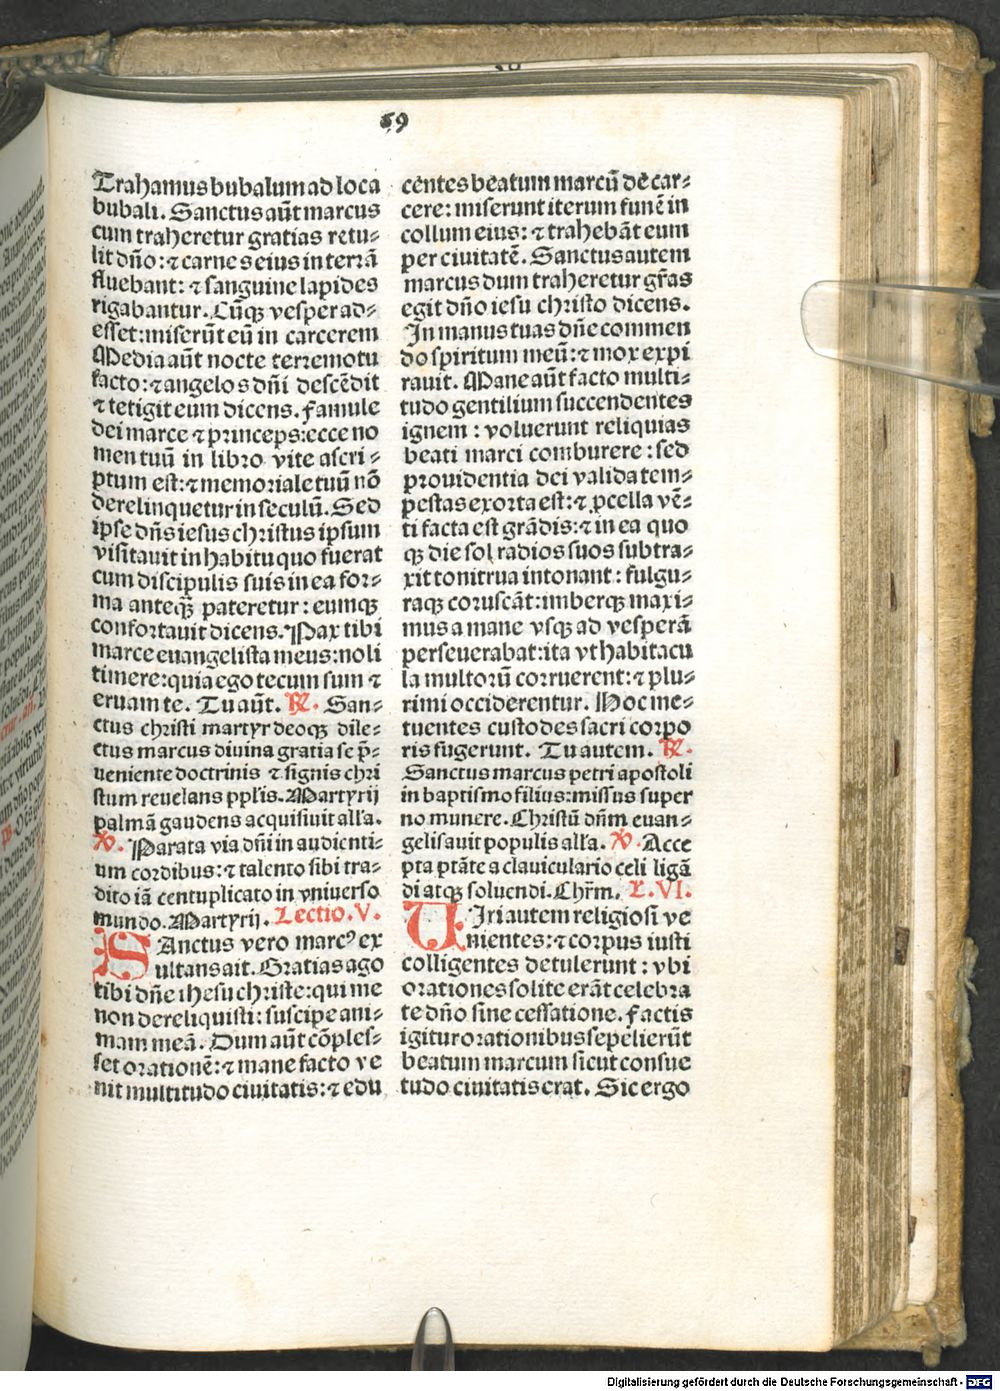 69
Trahamus bubalum ad loca
bubali. Sanctus aūt marcus
cum traheretur gratias retu-
lit dño: ⁊ carnes eius in terrā
fluebant: ⁊ sanguine lapides
rigabantur. Cūq̃ vesper ad-
esset: miserūt eū in carcerem
Media aūt nocte terremotu
facto: ⁊ angelos dñi descēdit
⁊ tetigit eum dicens. famule
dei marce ⁊ princeps: ecce no
men tuū in libro vite ascri-
ptum est: ⁊ memoriale tuū nō
derelinquetur in seculū. Sed
ipse dñs iesus christus ipsum
visitauit in habitu quo fuerat
cum discipulis suis in ea for-
ma anteq̃ pateretur: eumq̃
confortauit dicens. Pax tibi
marce euangelista meus: noli
timere: quia ego tecum sum ⁊
eruam te. Tu aūt. ℟. San-
ctus christi martyr deoq̃ dile-
ctus marcus diuina gratia se p̄-
ueniente doctrinis ⁊ signis chri
stum reuelans pplis. Martyrij
palmā gaudens acquisiuit alla.
℣. Parata via dñi in audienti-
um cordibus: ⁊ talento sibi tra-
dito iā centuplicato in vniuerso
mundo. Martyrij. Lectio. V.
SAnctus vero marcꝰ ex
ultans ait. Gratias ago
tibi dñe ihesu christe: qui me
non dereliquisti: suscipe ani-
mam meā. Dum aūt cōples-
set orationē: ⁊ mane facto ve
nit multitudo ciuitatis: ⁊ edu
centes beatum marcū de car-
cere: miserunt iterum funē in
collum eius: ⁊ trahebāt eum
per ciuitatē. Sanctus autem
marcus dum traheretur gr̄as
egit dño iesu christo dicens.
In manus tuas dñe commen
do spiritum meū: ⁊ mox expi
rauit. Mane aūt facto multi-
tudo gentilium succendentes
ignem: voluerunt reliquias
beati marci comburere: sed
prouidentia dei valida tem-
pestas exorta est: ⁊ ꝓcella vē-
ti facta est grādis: ⁊ in ea quo
q̃ die sol radios suos subtra-
xit tonitrua intonant: fulgu-
raq̃ coruscāt: imberq̃ maxi-
mus a mane vsq̃ ad vesperā
perseuerabat: ita vt habitacu
la multorū corruerent: ⁊ plu-
rimi occiderentur. Hoc me-
tuentes custodes sacri corpo
ris fugerunt. Tu autem. ℟.
Sanctus marcus petri apostoli
in baptismo filius: missus super
no munere. Christū dñm euan-
gelisauit populis alla. ℣. Acce
pta ptāte a clauiculario celi ligā
di atq̃ soluendi. Chr̄m. L. VI.
UIri autem religiosi ve
nientes: ⁊ corpus iusti
colligentes detulerunt: vbi
orationes solite erāt celebra
te dño sine cessatione. factis
igitur orationibus sepelierūt
beatum marcum sicut consue
tudo ciuitatis erat. Sic ergo
Digitalisierung gefördert durch die Deutsche Forschungsgemeinschaft - DFG